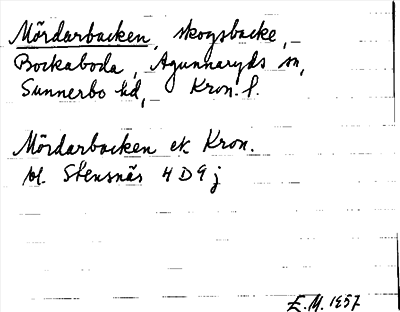 Mördarbacken, skogsbacke,
Bockaboda, Agunnaryds sn,
Sunnerbo hd, Kron. l.
Mördarbacken ek Kron.
bl. Stensnäs 4 D 9 j
E.M. 1957